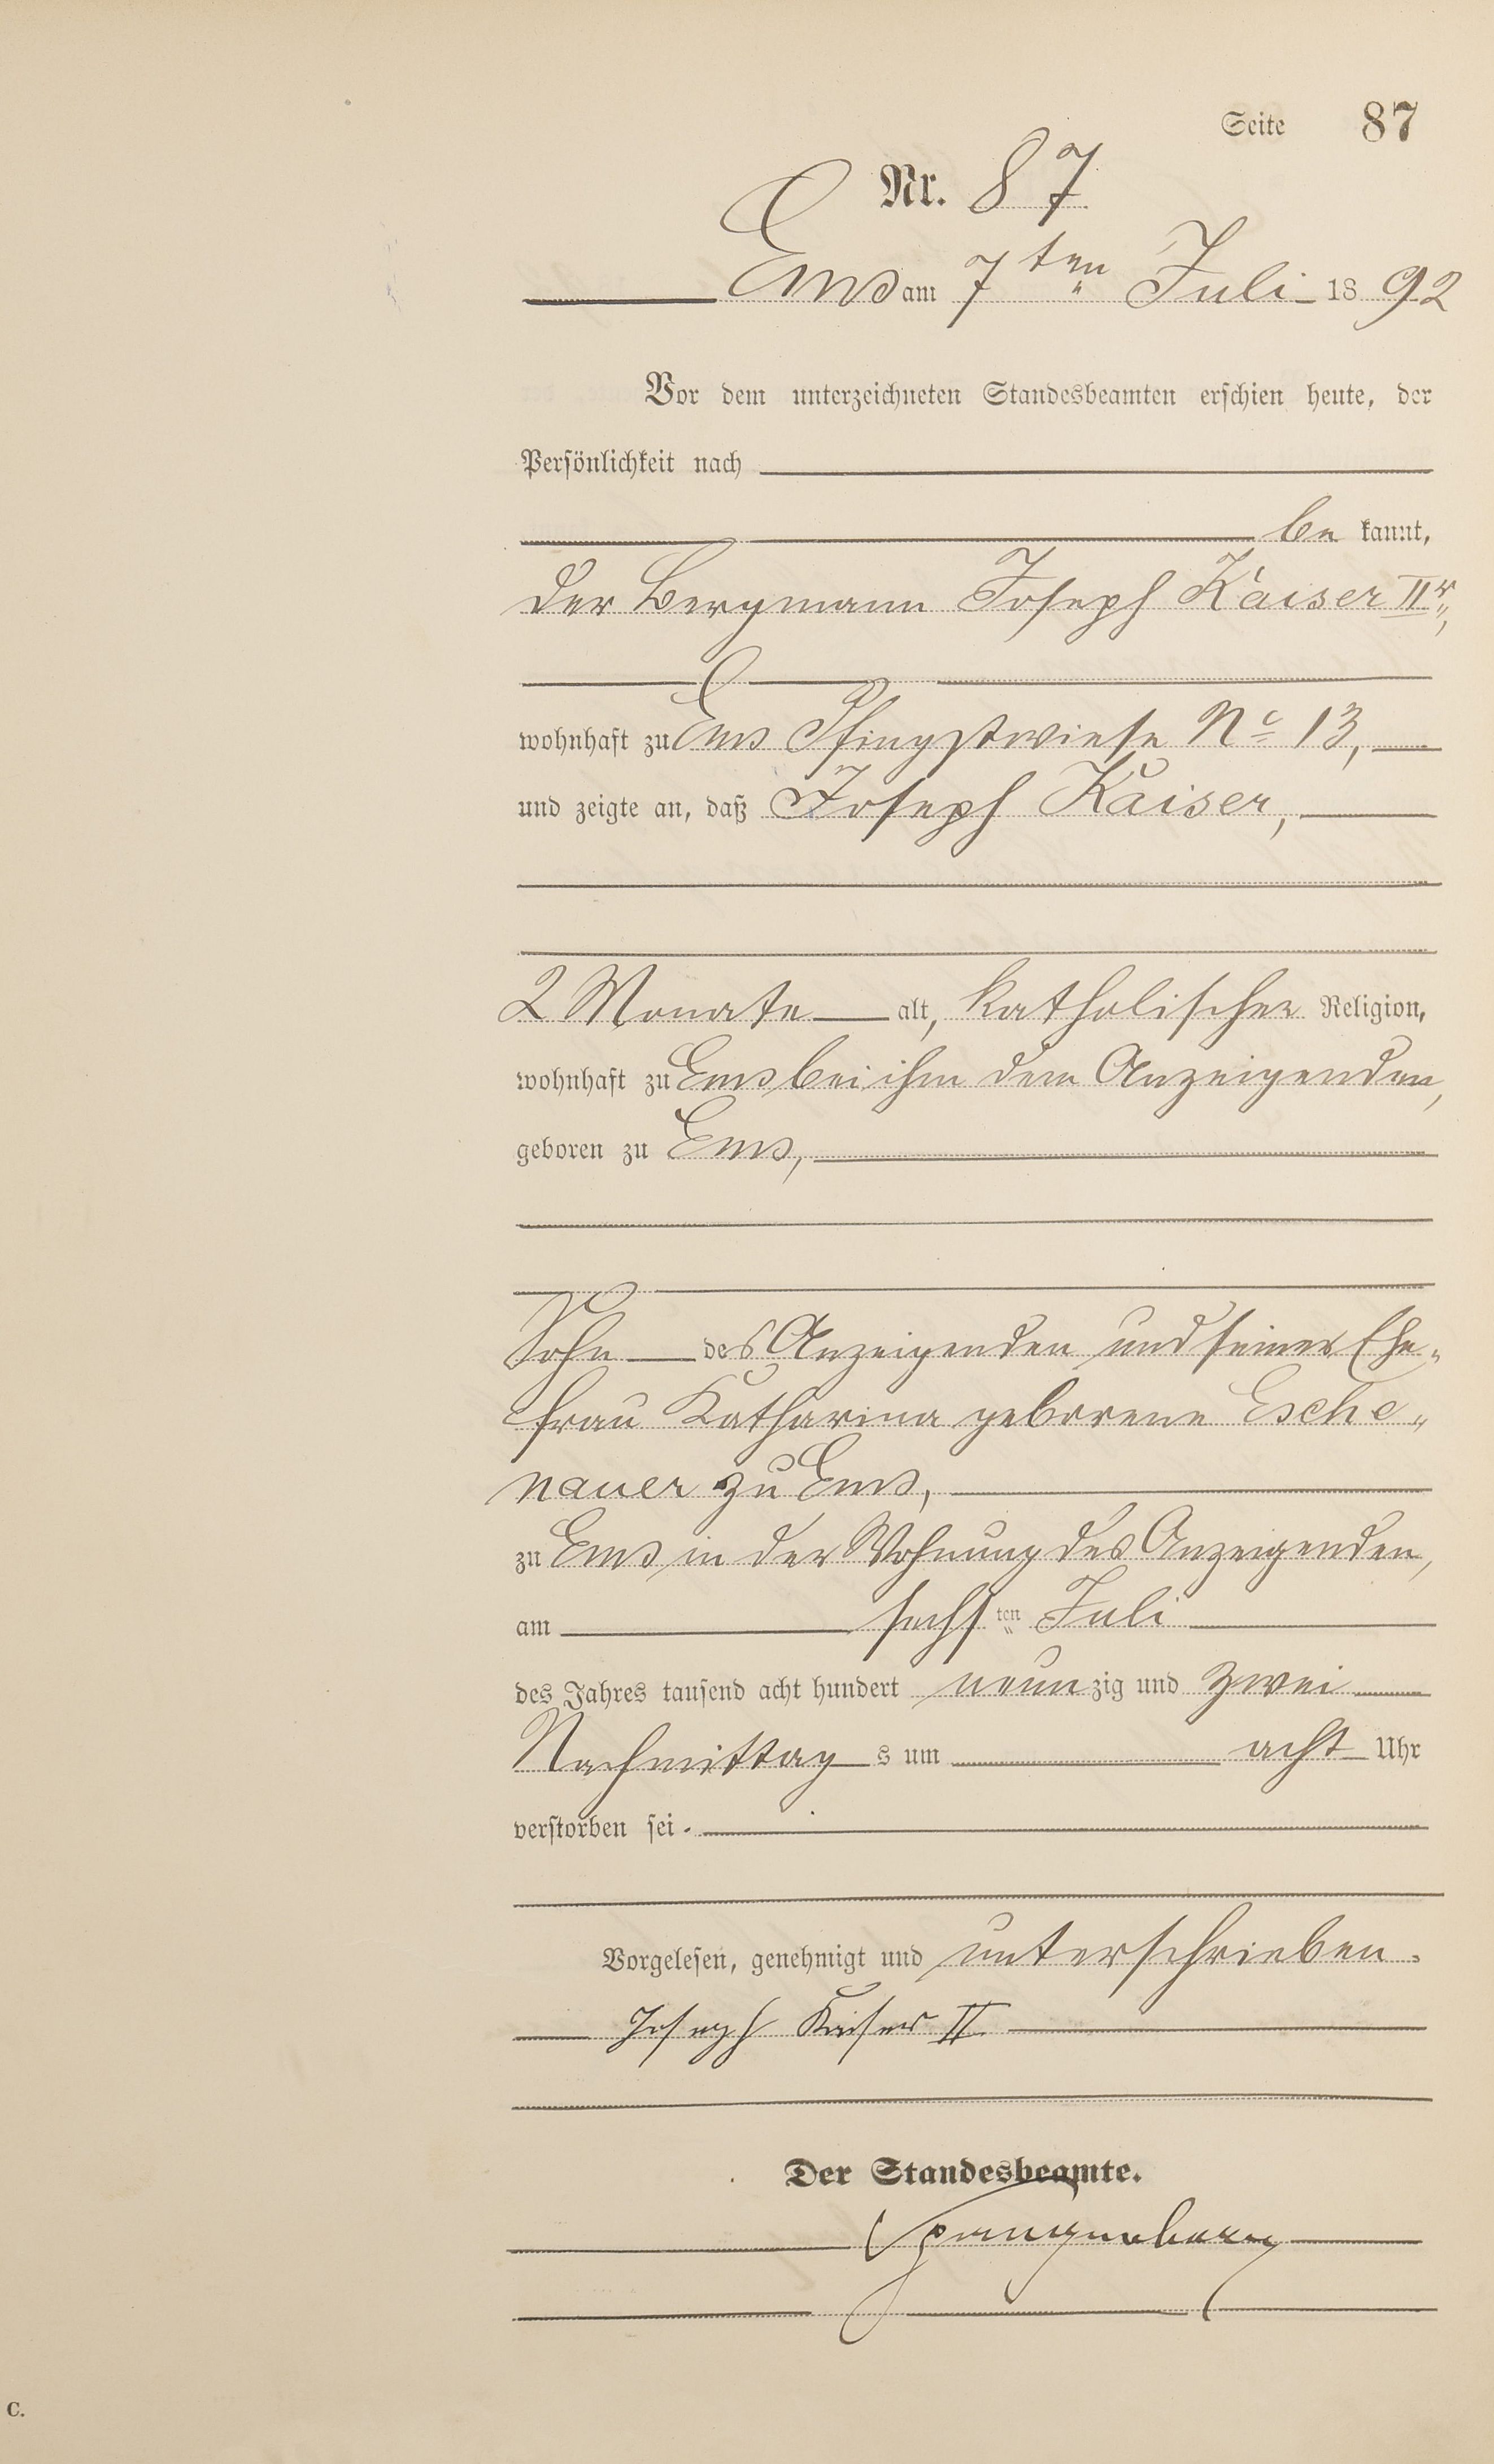 Seite 87
Nr. 87
Ems am 7ten Juli 1892
Vor dem unterzeichneten Standesbeamten erschien heute, der
Persönlichkeit nach
be kannt,
der Bergmann Joseph Kaiser IIr,
wohnhaft zu Ems Pfingstwiese No 13,
und zeigte an, daß Joseph Kaiser,
2 Monate alt, katholischer Religion,
wohnhaft zu Ems bei ihm dem Anzeigenden,
geboren zu Ems,
Sohn des Anzeigenden und seiner Ehe-
frau Katharina geborene Esche-
nauer zu Ems,
zu Ems in der Wohnung des Anzeigenden,
am sechsten Juli
des Jahres tausend acht hundert neunzig und zwei
Nachmittags um acht Uhr
verstorben sei.
Vorgelesen, genehmigt und unterschrieben.
Joseph Kaiser II
Der Standesbeamte.
C.